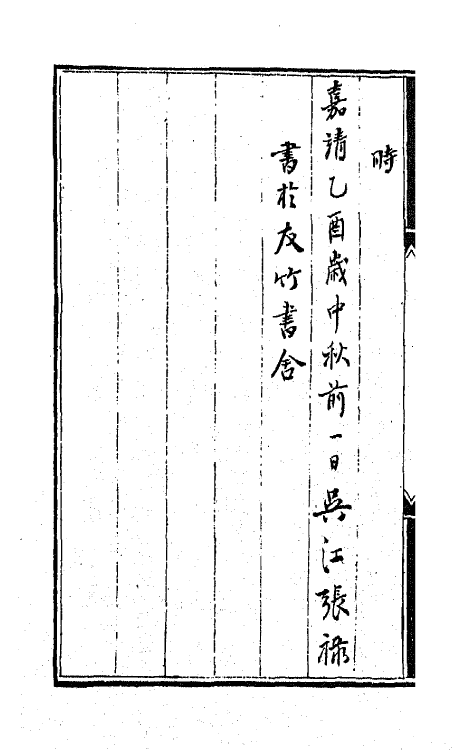 時
嘉靖乙酉歲中秋前一日吳江張祿
書於友竹書舍